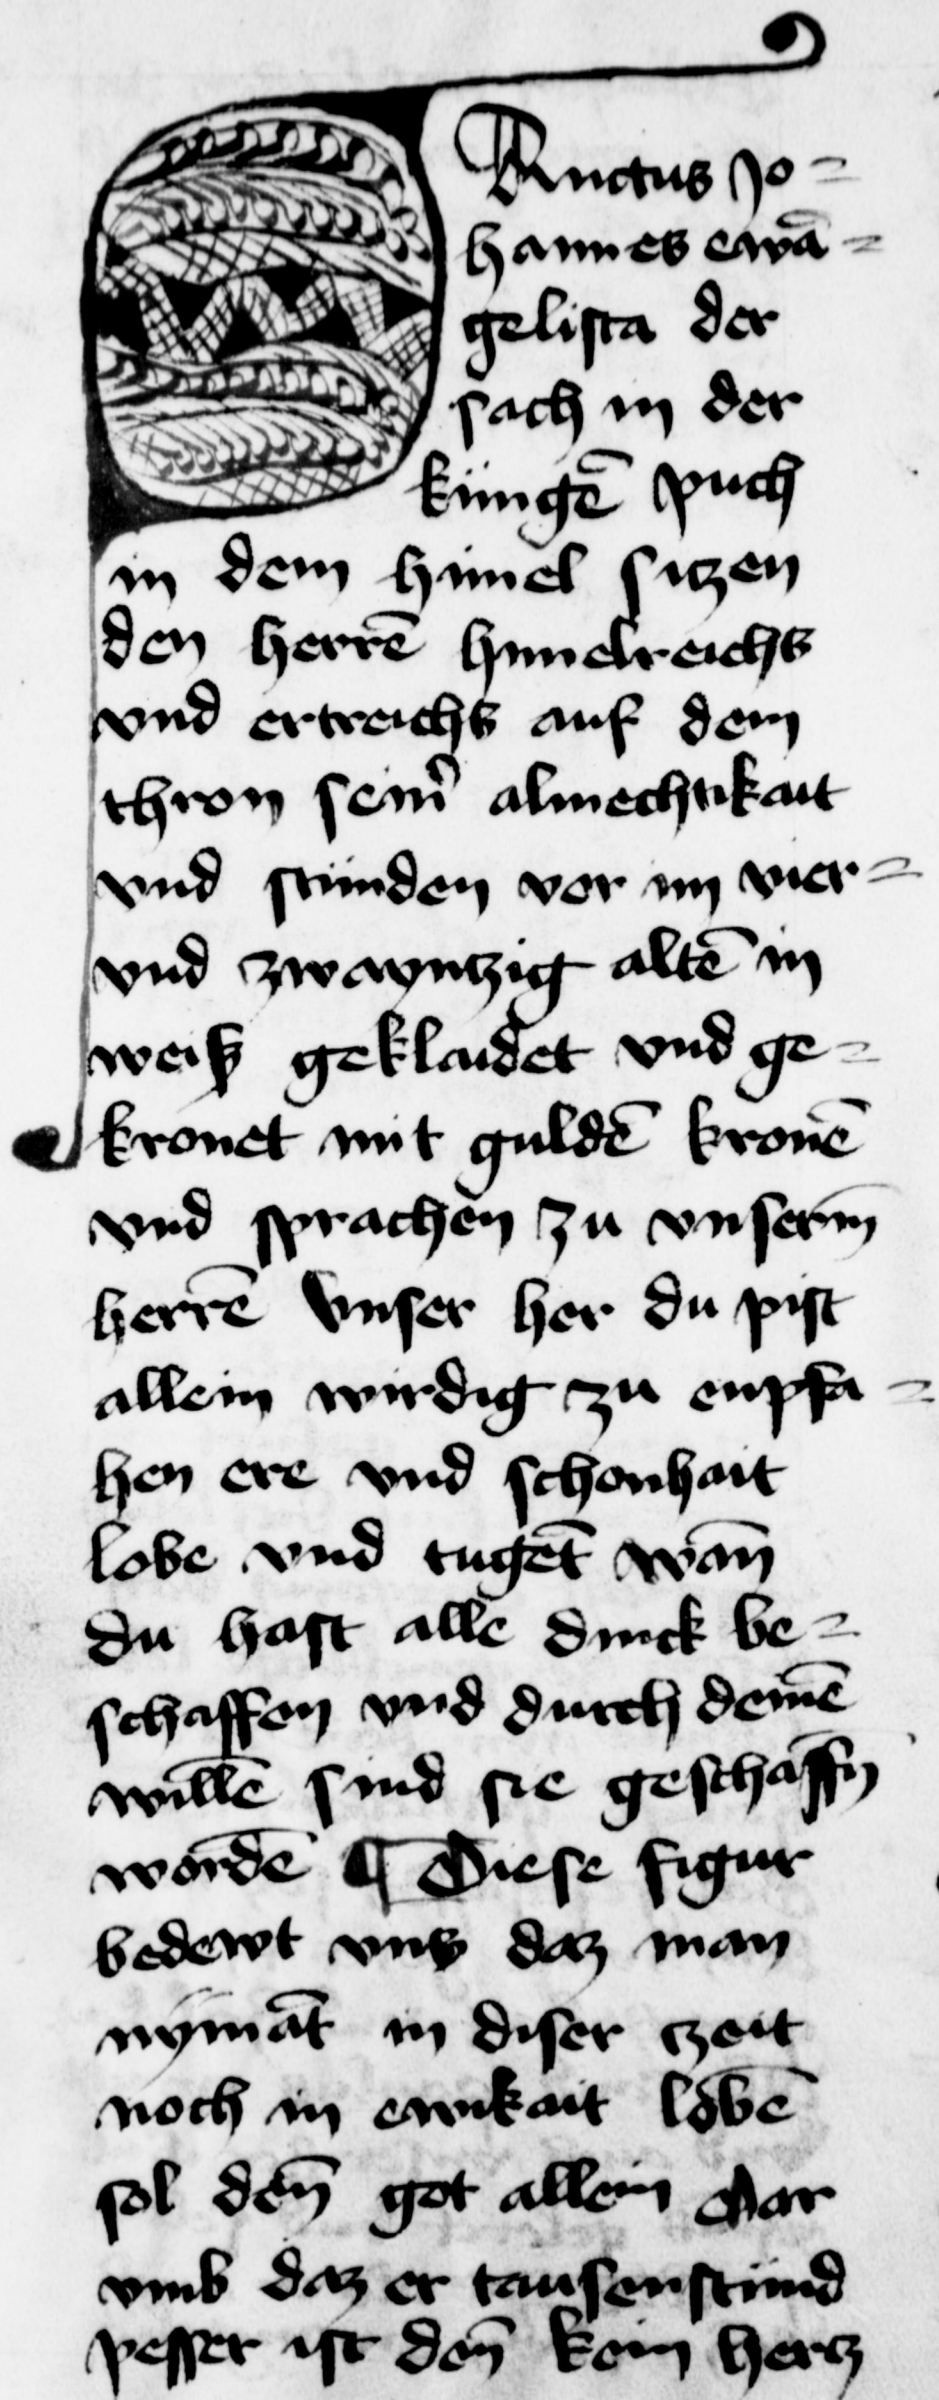 Sanctus Jo-
hannes ewā-
gelista der
sach in der
küngē puch
in dem himel sitzen
den herrē himelreichs
vnd ertreichs auf dem
thron seinr̄ almechtikait
vnd stünden vor im vier-
vnd zwayntzig altē in
weiß geklaidet vnd ge-
kronet mit guldē kronē
vnd sprachen zu vnserm̄
herrē Vnser her du pist
allein wirdig zu enpfa-
hen ere vnd schonhait
lobe vnd tugēt wan̄
du hast alle dinck be-
schaffen vnd durch deinē
willē sind sie geschaffn̄
wordē ¶ Diese figur
bedewt vns daz man
nymāt in diser tzeit
noch in ewikait lobē
sol den̄ got allein Dar
vmb daz er tausenstund
pesser ist den̄ kein hertz